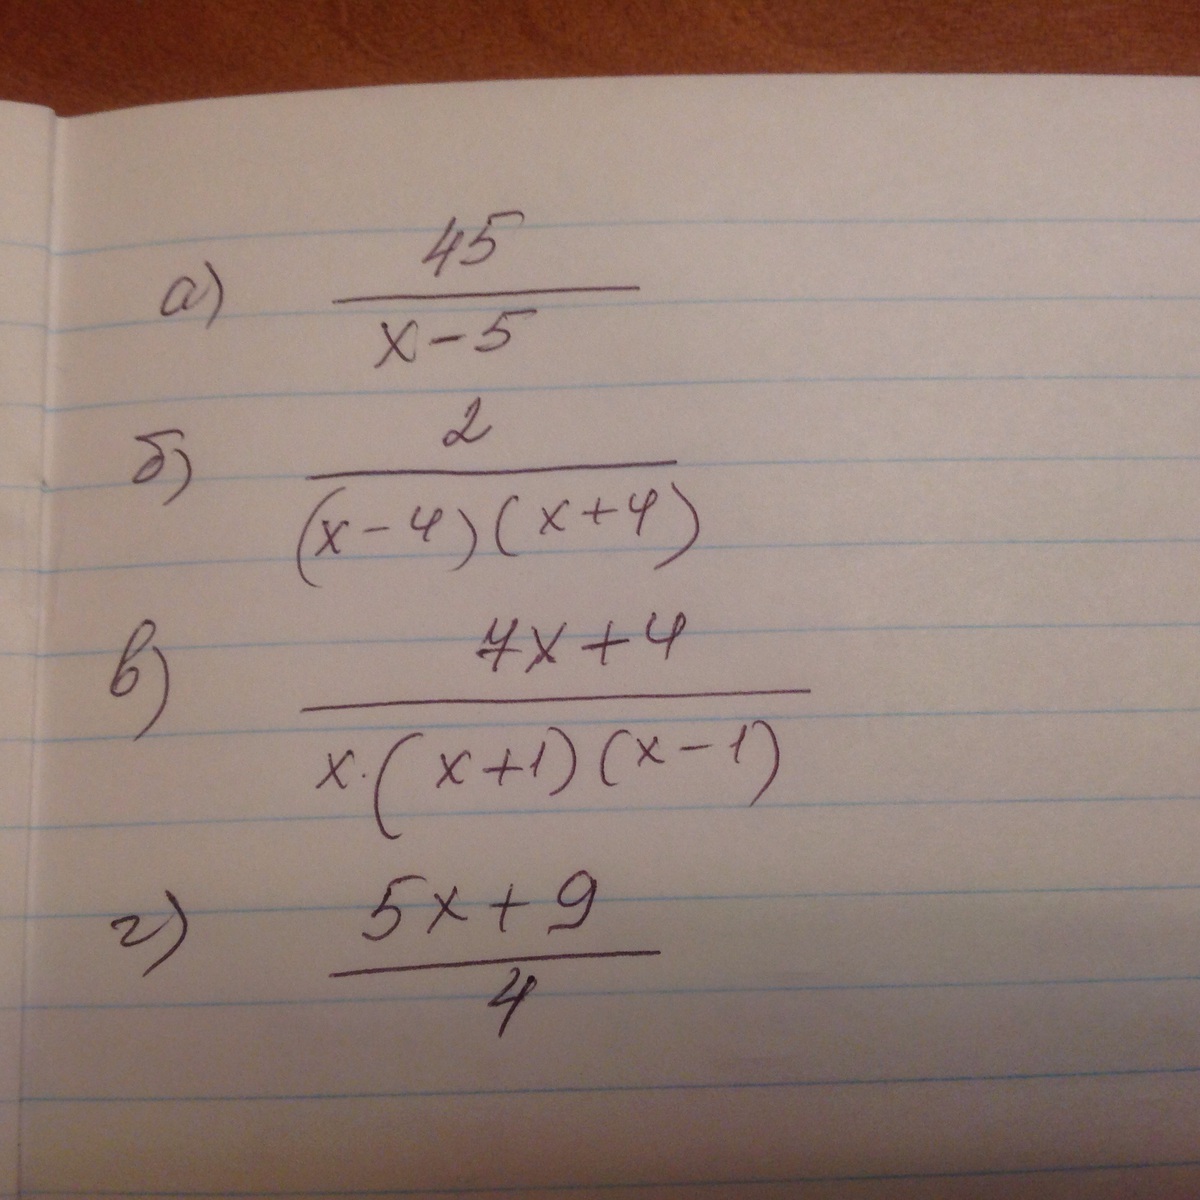 а) 45
x-5
б) 2
(x-4)(x+4)
в) 7x+4
x·(x+1)(x-1)
г) 5x+9
4